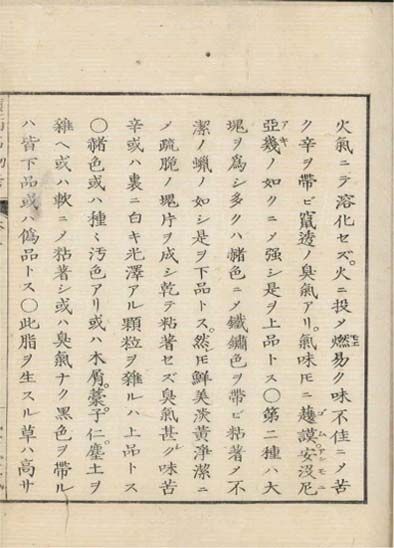 火氣ニテ溶化セズ。火ニ投メ燃易ク味不佳ニメ苦
ク辛ヲ帶ビ竄透ノ臭氣アリ。氣味𪜈ニ越謨。安没尼
亞幾ノ如クニメ强シ是ヲ上品トス〇第二種ハ大
塊ヲ爲シ多クハ赭色ニメ鐵鏽色ヲ帶ビ粘著メ不
潔ノ蝋ノ如シ是ヲ下品トス。然𪜈鮮美淡黄淨潔ニ
メ疏脆ノ塊片ヲ成シ乾テ粘著セズ臭氣甚ク味苦
辛或ハ裏ニ白キ光澤アル顆粒ヲ雜ルハ上品トス
〇赭色或ハ種〻汚色アリ或ハ木屑。藁。子。仁。塵土ヲ
雜ヘ或ハ軟ニメ粘著シ或ハ臭氣ナク黑色ヲ帶ル
ハ皆下品或ハ偽品トス〇此脂ヲ生スル草ハ高サ